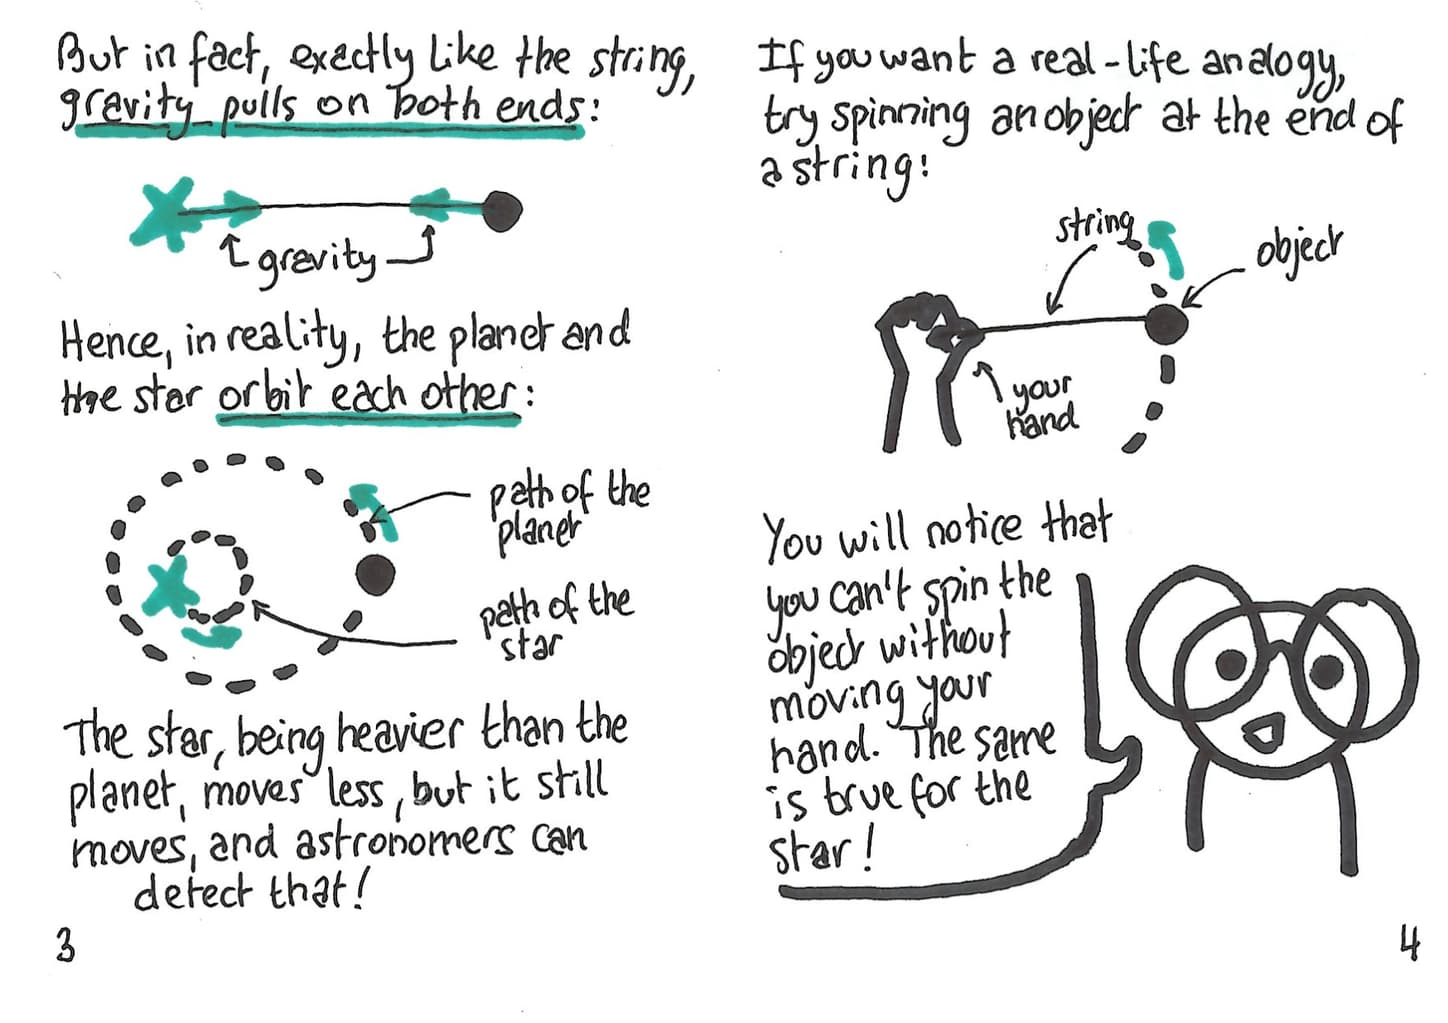 But in fact, exactly like the string,
gravity pulls on both ends:
gravity
Hence, in reality, the planet and
the star orbit each other:
path of the
planet
path of the
star
The star, being heavier than the
planet, moves less, but it still
moves, and astronomers can
detect that!
3
If you want a real-life analogy,
try spinning an object at the end of
a string:
string
object
your
hand
You will notice that
you can't spin the
object without
moving your
hand. The same
is true for the
star!
4